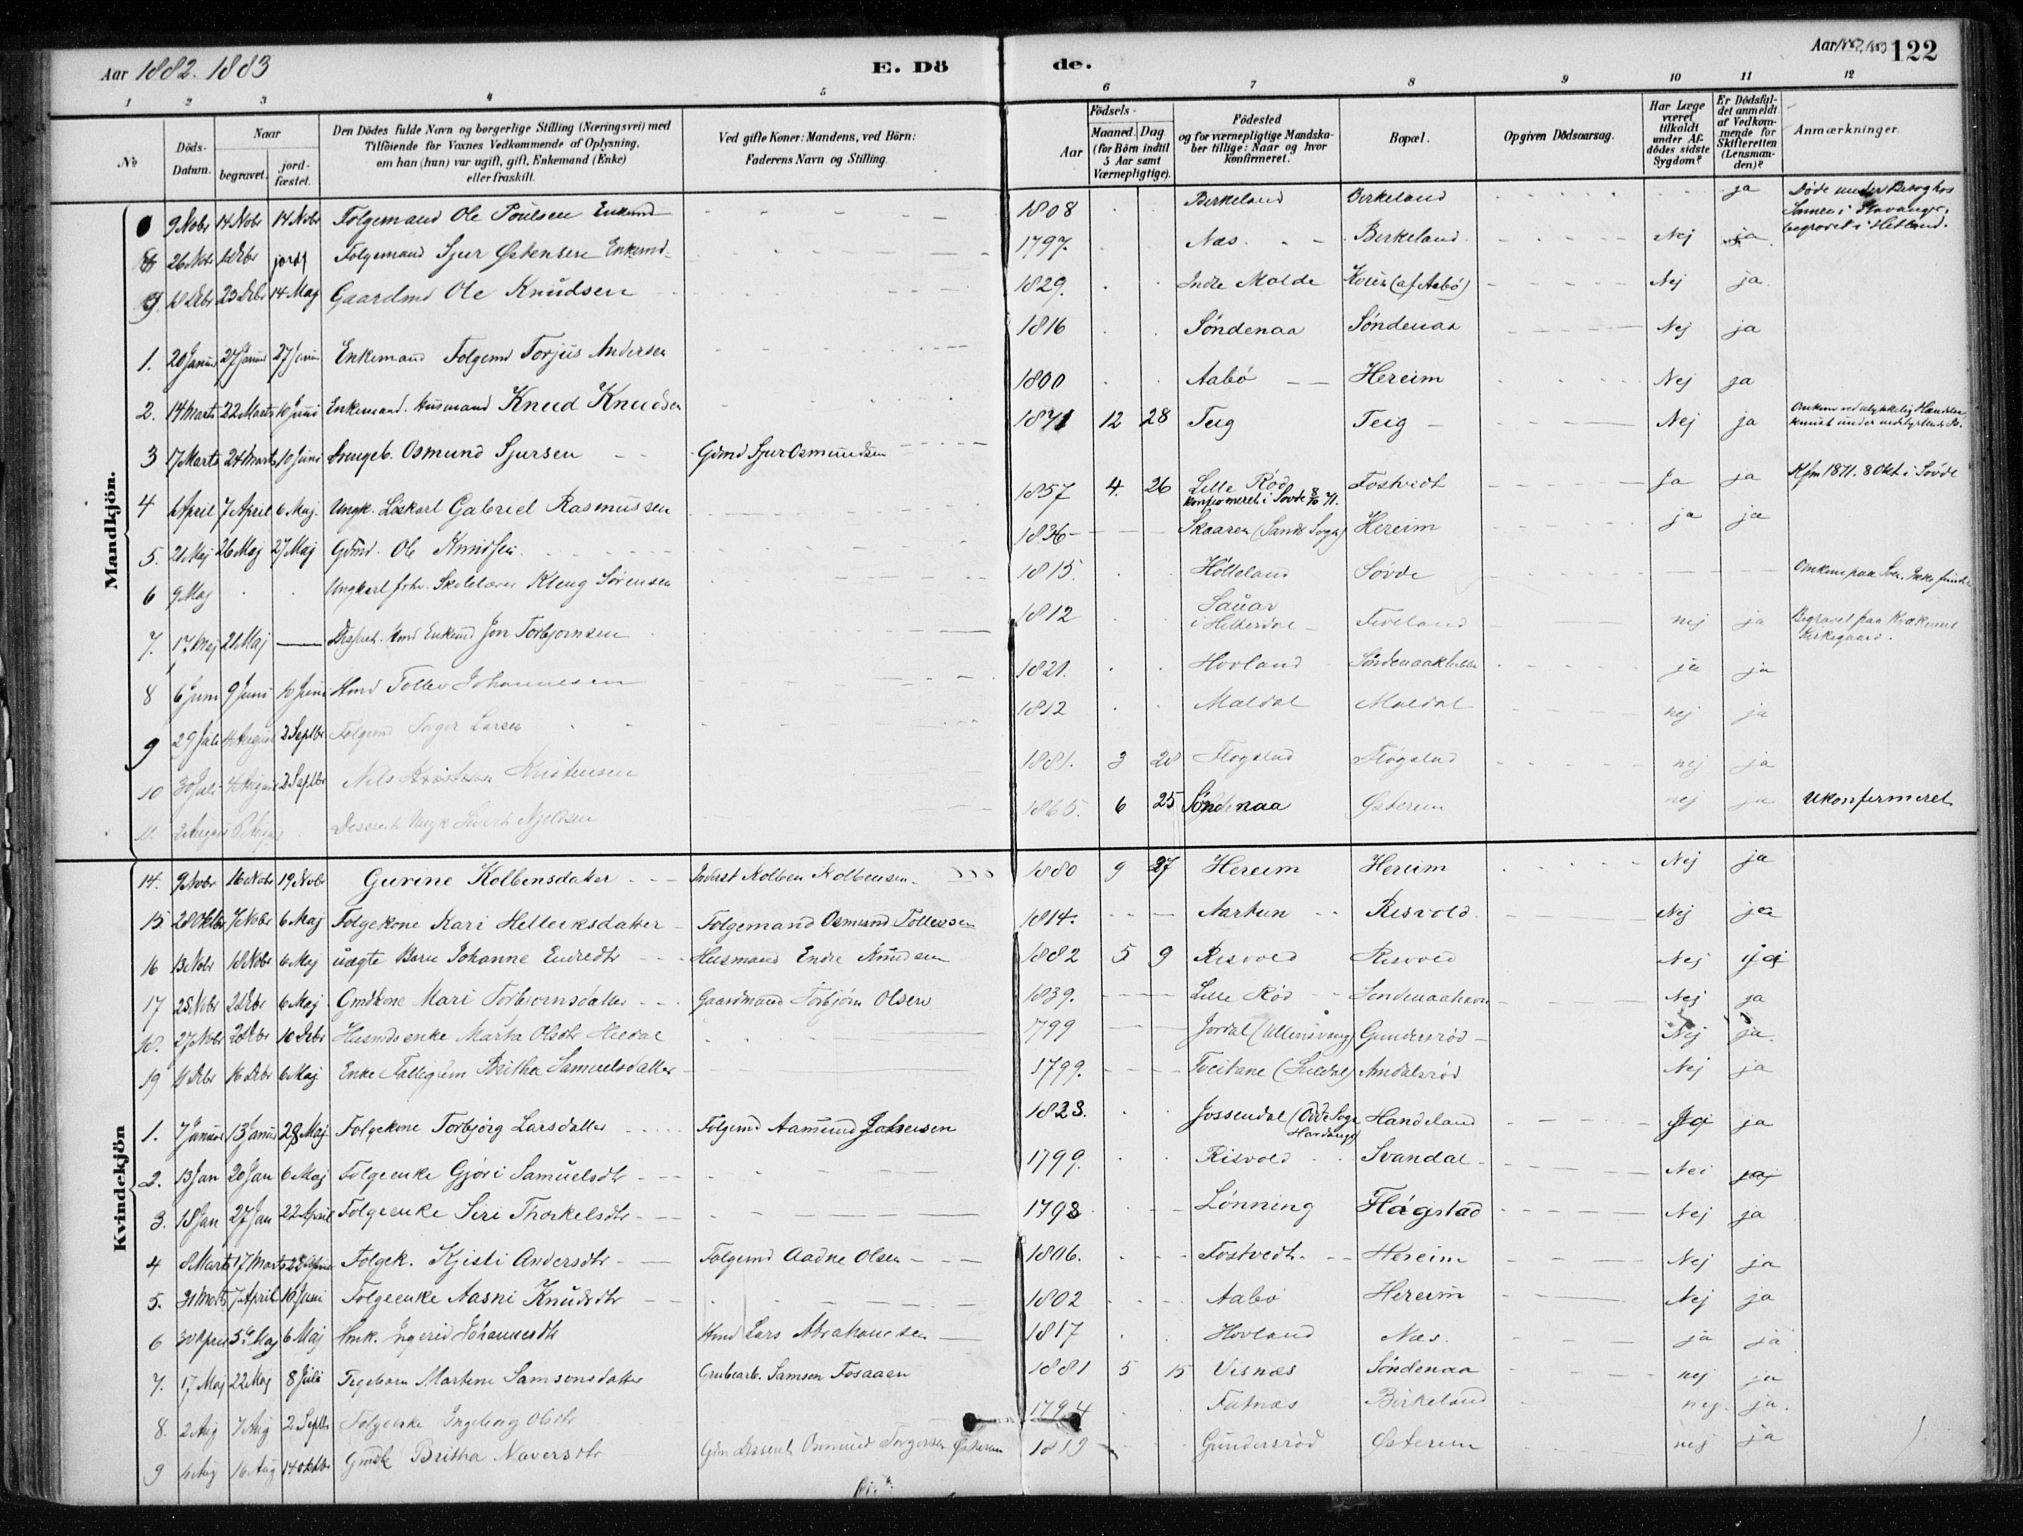 Aar 1882. 1883 E. Dö de. Aar 122
1 2 3 4 5 6 7 8 9 10 11 12
No Döds-Datum. Naar begravet. jord-fæstet. Den Dödes fulde Navn og borgerlige Stilling (Næringsvei) med Tilföiende for Voxnes Vedkommende af Oplysning, om han (hun) var ugift, gift, Enkemand (Enke) eller fraskilt. Ved gifte Koner: Mandens, ved Börn: Faderens Navn og Stilling. Födsels- Aar Maaned. Dag (for Börn indtil 5 Aar samt Værnepligtige). Födested og for værnepligtige Mandska-ber tillige: Naar og hvor konfirmeret. Bopæl. Opgiven Dödsaarsag. Har Læge været tilkaldt under Af-dödes sidste Sygdom? Er Dödsfal-det anmeldt af Vedkom-mende for Skifteretten (Lensman-den)? Anmærkninger.
Mandkjön.
9 Nobr 14 Nobr 14 Nobr Folgemand Ole Poulsen Enkemd 1808 Birkeland Birkeland ja Döde under Besög hos Sönnen i Stavanger, begravet i Hetland.
8 26 Nobr 1 Dbr jordf Folgemand Sjur Østensen Enkemd. 1797. Næs. Birkeland. Nej ja
9. 18 Dbr 23 Dbr 14 Maj Gaardmd Ole Knudsen 1829. Indre Molde (af Aabö) Nej ja.
1. 20 Januar 27 Januar 27 Januar Enkemand Folgemd Torjus Andersen 1816 Söndenaa Söndenaa Nej ja
2. 14 Marts 22 Marts 10 Juni Enkemand. Husmand Knud Knudsen 1800 Aabö Hereim Nej ja
3 17 Marts 24 Marts 10 Juni Drengeb. Osmund Sjursen Gdmd Sjur Osmundsen 1871 12 28 Teig Teig Nej ja
4 1 April 7 April 6 Maj. Ungk. Löskarl Gabriel Rasmussen 1857 4. 26 Lille Röd konfirmeret i Sövde 8/10 71. Fostvedt Ja ja Kfm 1871. 8 Okt i Sövde
5. 21 Maj 26 Maj 27 Maj Gdmd. Ole Knudsen. 1836 Skaaren (Sands Sogn) Hereim ja ja
6 9 Maj Ungkarl fhv. Skolelærer Kleng Sörensen 1815. Hölleland Sövde
7. 17 Maj 21 Maj Hmd Enkemd Jon Torbjornsen 1812 Sauar i Hitterdal nej ja Begravet paa Kirkegaard.
8 6 Juni 9 Juni 10 Juni Hmd Tollev Johannesen 1821. Hovland ja ja
9 29 Juli 4 August 2 Septbr Folgemd Torger Larsen 1812 Maldal Maldal nej ja
10 30 Juli 4 August 2 Septbr Nils Kristensen 1881. 3 28 Flogstad Flögstad nej ja
11. 2 August Ungk 1865. 6 25 Söndenaa Østerem nej ja Ukonfirmeret
Kvindekjön
14. 9 Nobr 16 Nobr 19 Nobr Gurine Kolbensdatter Inderst Kolben Kolbensen. 1880 9 27 Hereim Hereim Nej ja
15. 28 Oktbr 7 Nobr 6 Maj Folgekone Kari Helleiksdatter Folgemand Osmund Tollevsen 1814. Aarhun Risvold. Nej ja
16 13 Nobr 18 Nobr 6 Maj uægte Barn Johanne Endredtr Husmand Endre Knudsen 1882 5 9 Risvold Risvold Nej ja
17 25 Nobr 2 Dbr 6 Maj Gmdkone Mari Torbjornsdatter Gaardmand Torbjörn Olsen 1839. Lille Röd Söndenaahavn Nej ja
18. 27 Nobr 2 Dbr 10 Debr Husmdsenke Marta Olsdtr Hildal 1799 Jordal (Ullensvang) Gundersröd Nej ja.
19 11 Dbr 16 Dbr 6 Maj Enke Fattiglem Britha Samuelsdatter 1799. (Suldal) Amdalsröd Nej ja
1. 7 Januar 13 Januar 28 Maj Folgekone Torbjörg Larsdatter Folgemd Aamund Johnsen 1823. Jossendal (Odde Sogn Hardanger) Handeland ja
2. 13 Jan 20 Jan 6 Maj Folgeenke Gjöri Samuelsdtr 1799. Risvold Svandal Nei ja
3. 18 Jan 27 Jan 22 April Folgeenke Siri Thorkelsdtr 1798 Lönning Flågstad Nej ja
4 Marts 17 Marts 22 April Folgek. Kjisti Andersdtr Folgemd Aadne Olsen 1806. Fostvedt. Hereim Nej ja
5. 31 Marts 7 April 10 Juni Folgeenke Aasni Knudsdtr 1802 Aabö Hereim Nej ja
6 30 April 5te Maj 6 Maj Hmk. Ingerid Johannesdtr Hmd Lars Abrahamsen 1817 Hovland Næs. ja ja
7. 17 Maj 22 Maj 8 Juli Pigebarn Martine Samsonsdatter Grubearb. Samson Fosaaen 1881 5 15 Visnæs Söndenaa nej ja
8. 2 Aug 7 Aug 2 Septbr Folgeenke Ingeborg Olsdtr 1794 Fatnæs Birkeland nej. ja.
9 Aug 16 Aug 14 Oktbr Britha Naversdtr Gdm Dissent Osmund Torgersen Østerem 1819 Gundersröd Østerem nej ja